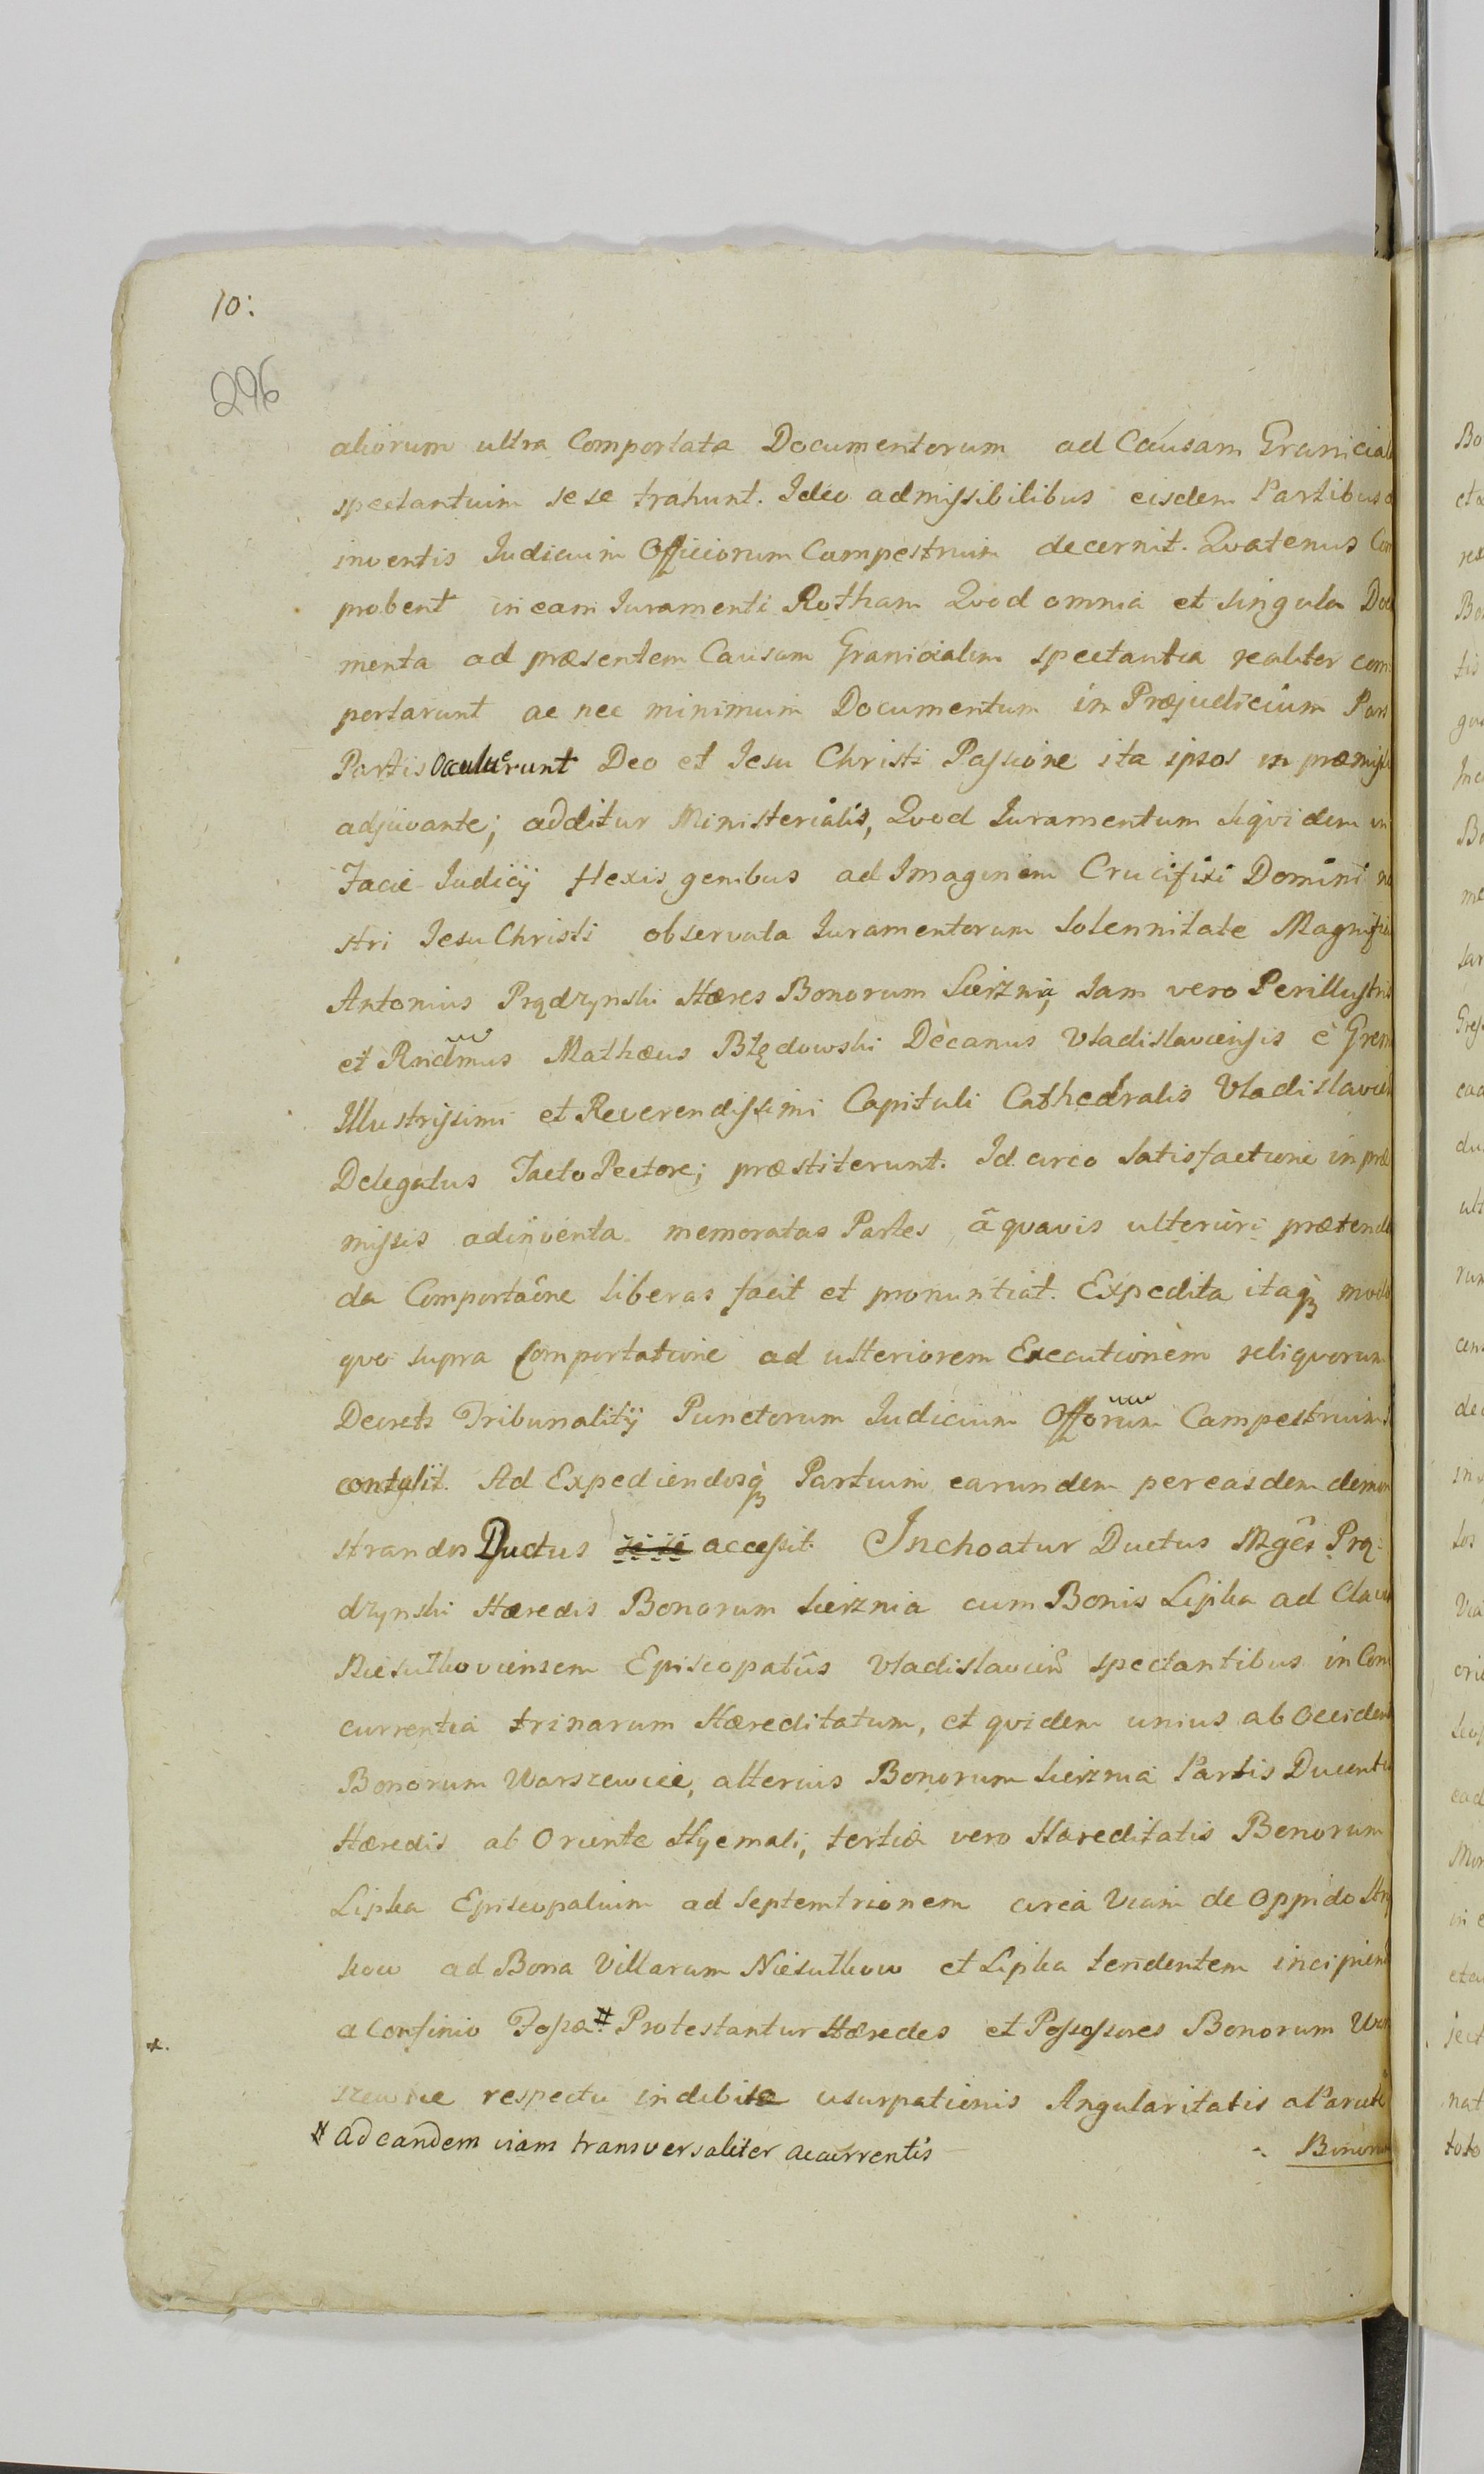 10:
296
aliorum ultra Comportata Documentorum ad Causam Granicial
spectantium sese trahunt. Ideo admissibilibus eisdem Partibus a
inventis Iudicium Officiorum Campestrium decernit. Qvatenus Com
probent in eam Iuramenti Rotham Qvod omnia et singula Docu
menta ad præsentem Causam Granicialem spectantia realiter com
portarunt ac nec minimum Documentum in Præjudicium Pars
Partis Oculuerunt Deo et Iesu Christi Passione ita ipsos in præmiss
adjuvante; additur Ministerialis, Qvod Iuramentum siqvidem in
Facie Iudicij flexis genibus ad Imaginem Crucifixi Domini no
stri Iesu Christi observata Iuramentorum Solennitate Magnific
Antonius Prądzynski Hæres Bonorum Sierznia, Iam vero Perillustris
et Rndmus Mathæus Błędowski Decanus Vladislaviensis è Grem
Illustrissimi et Reverendissimi Capituli Cathedralis Vladislavien
Delegatus Tacto Pectore; præstiterunt. Id circo Satisfactione in præ
missis adinventa memoratas Partes â qvavis ulteriori prætenden
da Comportaône liberas facit et pronuntiat. Expedita itaq modo
qvo supra Comportatione ad ulteriorem Executionem reliqvorum
Decreti Tribunalitij Punctorum Iudicium Offorum Campestrium
contulit. Ad Expediendosq Partium earundem per easdem demon
strandos Ductus se se accessit. Inchoatur Ductus Mgci Prą-
dzynski Hæredis Bonorum Sierznia cum Bonis Lipka ad Clavem
Niesułkoviensem Episcopatûs Vladislavien spectantibus in Con
currentia trinarum Hæreditatum, et qvidem unius ab Occident
Bonorum Warszewice, alterius Bonorum Sierznia Partis Ducentis
Hæredis ab Oriente Hyemali, tertiæ vero Hæreditatis Bonorum
Lipka Episcopalium ad Septemtrionem circa Viam de Oppido Stry
kow ad Bona Villarum Niesułkow et Lipka tendentem incipiend
a Confinio Fossæ # Protestantur Hæredes et Possessores Bonorum War
szewice respectu indebitæ usurpationis Angularitatis a Parte
# ad eandem viam transversaliter accurrentis
Bonorum